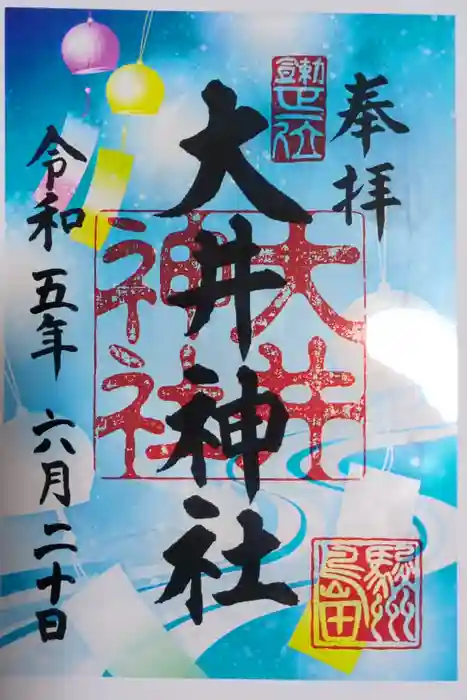 奉拝
勅宣正一位
大井神社
大井神社
駿州島田
令和五年 六月二十日